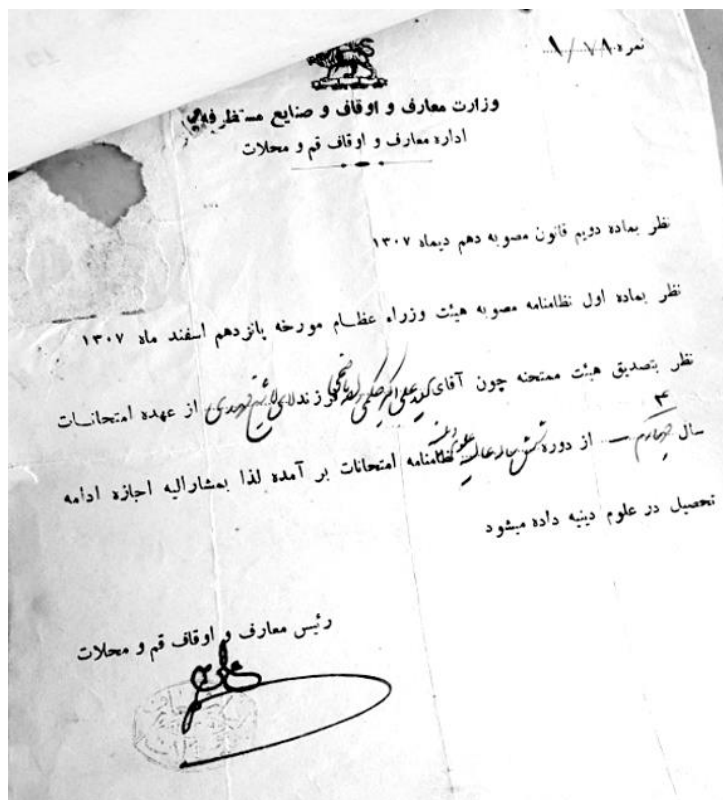 نمره ۱/۷۸
وزارت معارف و اوقاف و صنایع مستظرفه
اداره معارف و اوقاف قم و محلات
نظر بماده دویم قانون مصوبه دهم دیماه ۱۳۰۷
نظر بماده اول نظامنامه مصوبه هیئت وزراء عظام مورخه پانزدهم اسفند ماه ۱۳۰۷
نظر بتصدیق هیئت ممتحنه چون آقای سید علی اکبر فرزند از عهده امتحانات
سال چهارم ۴ از دوره شش ساله نظامنامه امتحانات بر آمده لذا بمشارالیه اجازه ادامه
تحصیل در علوم دینیه داده میشود
رئیس معارف و اوقاف قم و محلات